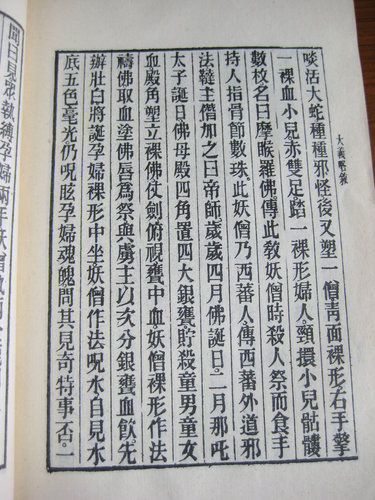 大義略敘
啖活大蛇種種邪怪後又塑一僧青面裸形。右手擎
一裸血小兒赤雙足踏一裸形婦人。頸擐小兒骷髏
數枚名曰摩睺羅佛。傳此教妖僧時殺人祭而食手
持人指骨節數珠。此妖僧乃西蕃人。傳西蕃外道邪
法韃主僭加之曰帝師歲歲四月佛誕日。二月那吒
太子誕日佛母殿四角置四大銀甕。貯殺童男童女
血殿角塑立裸佛仗劍俯視甕中血。妖僧裸形作法
禱佛取血塗佛唇爲祭與虜主以次分銀甕血飲。先
辦壯白將誕孕婦裸形中坐妖僧作法呪水。自見水
底五色毫光。仍呪眩孕婦魂魄問其見奇特事否。一
曰見眾執縛孕婦兩手妖僧